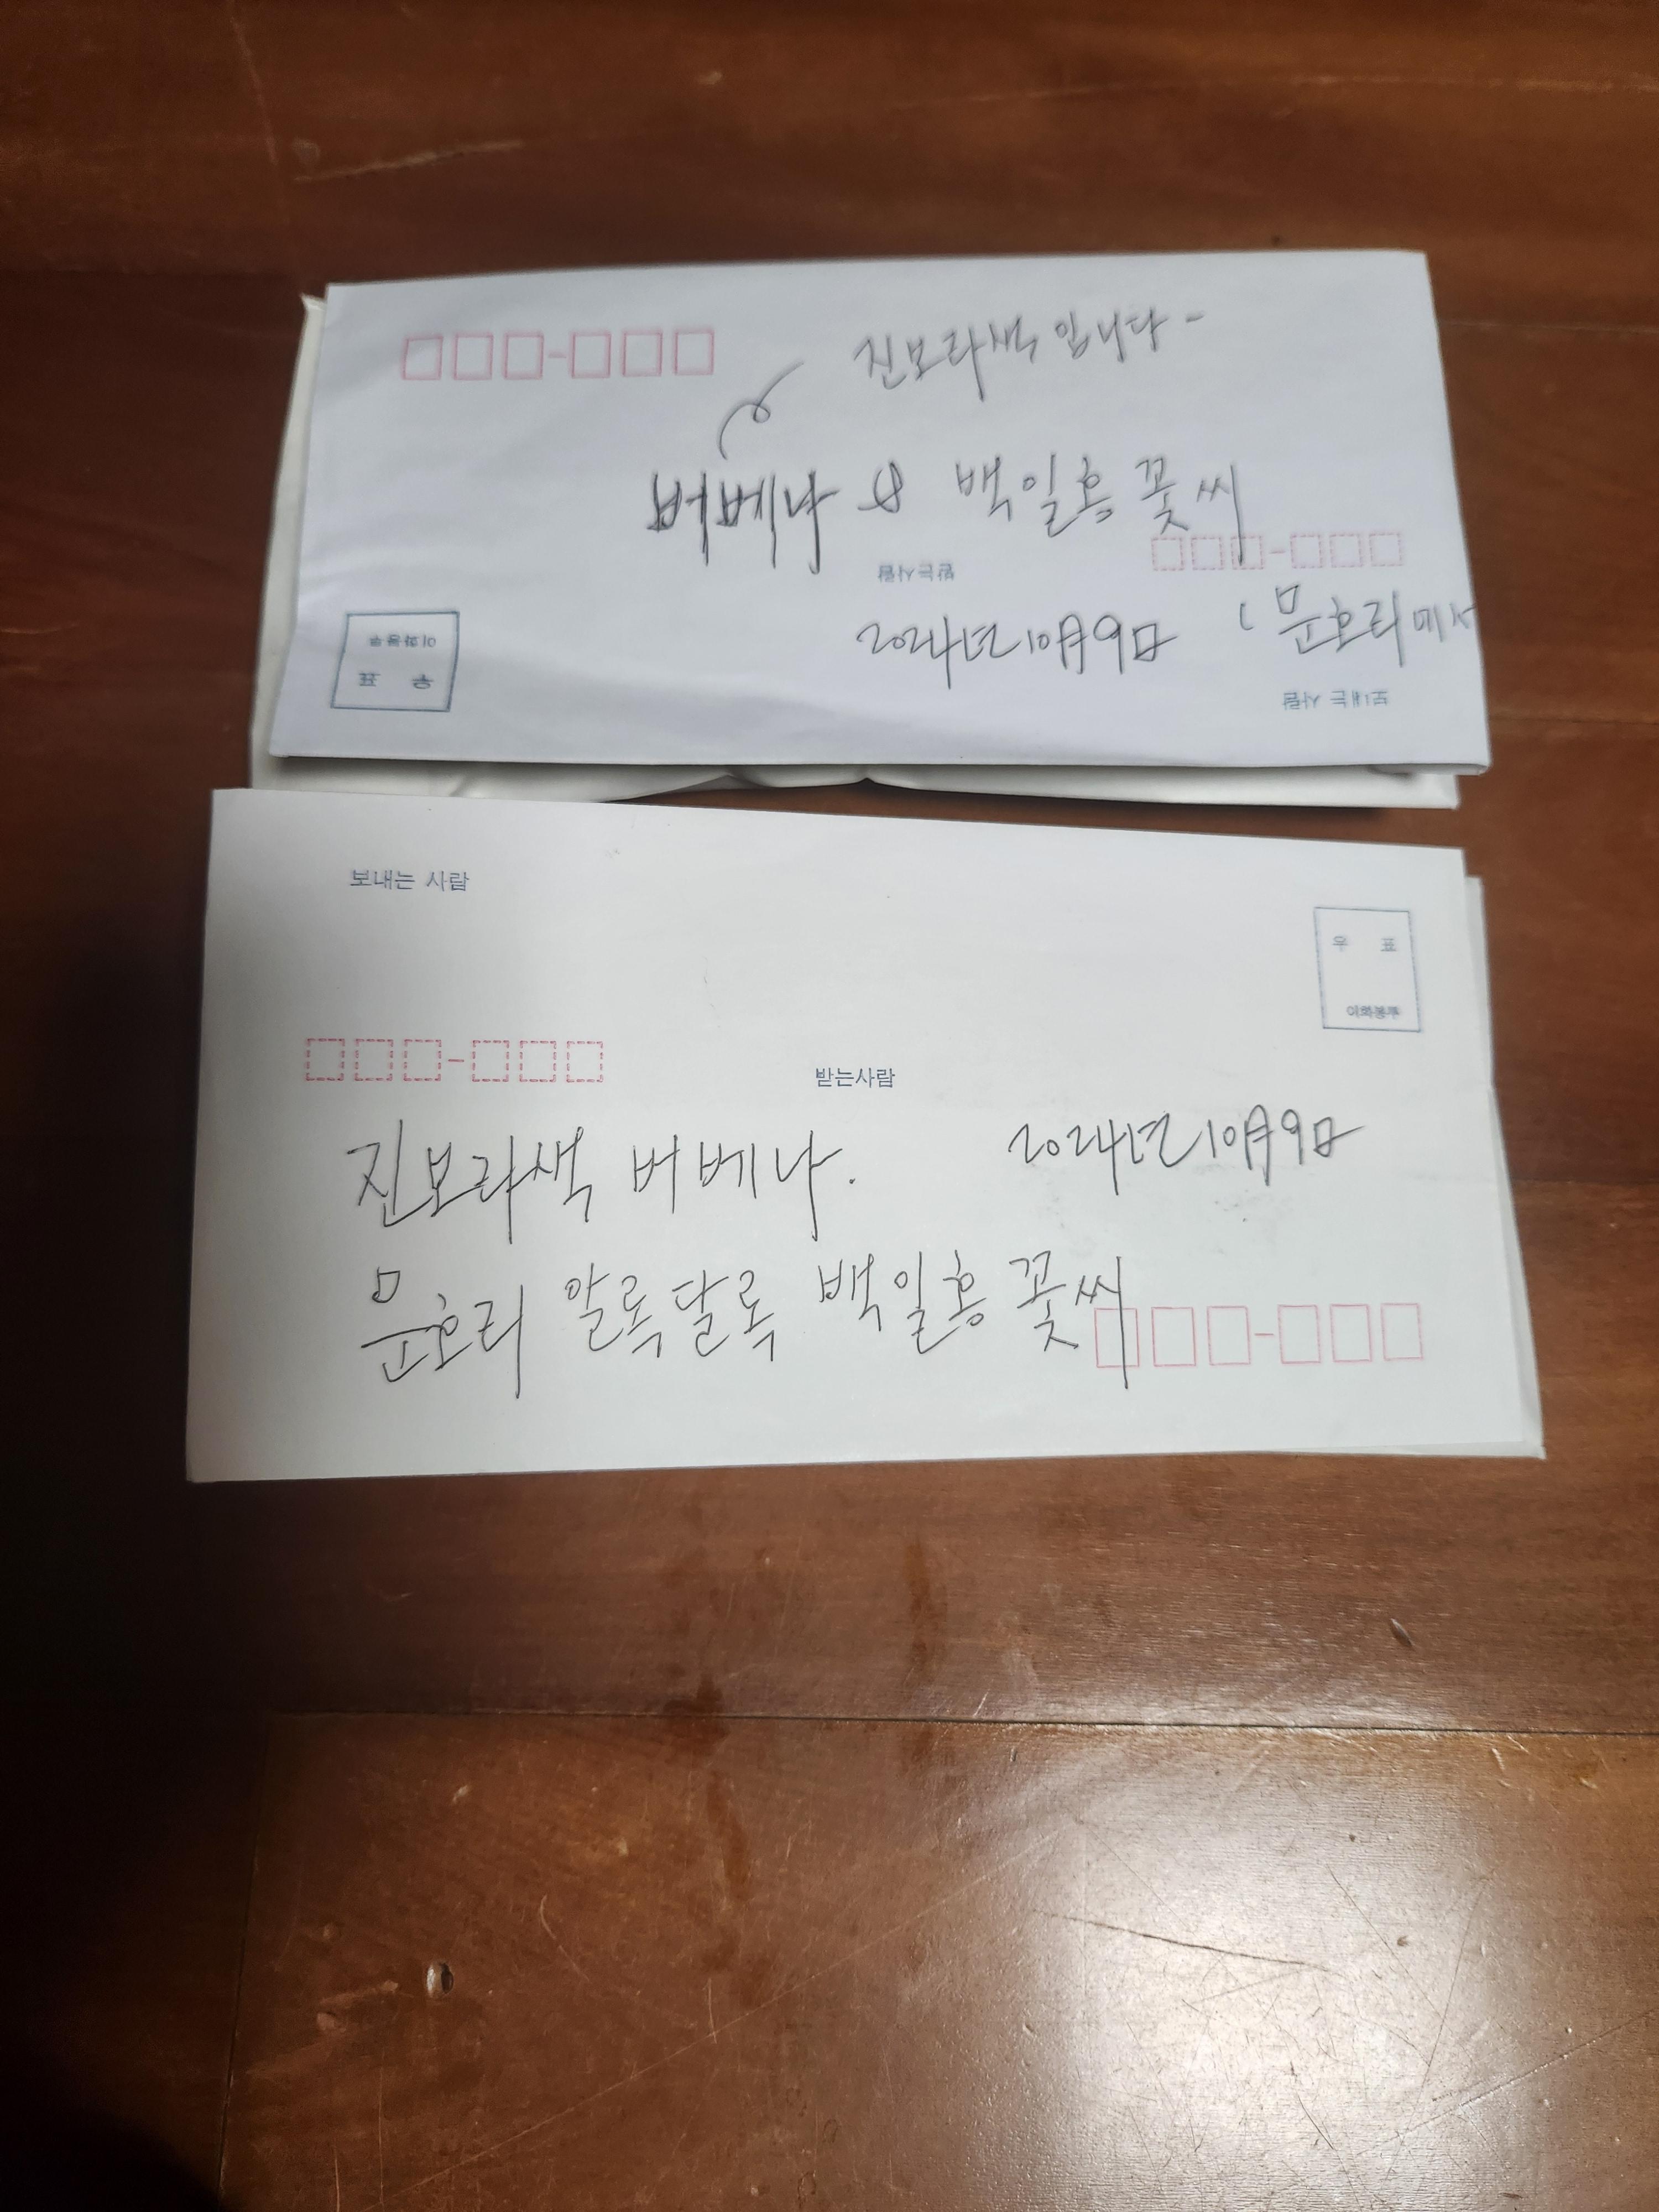 진보라색 입니다-
버베나 & 백일홍 꽃씨
받는사람
2024년 10月 9日 (문호리에서
이화봉투
우 표
보내는 사람
보내는 사람
우 표
이화봉투
받는사람
진보라색 버베나. 2024년 10月 9日
문호리 알록달록 백일홍 꽃씨